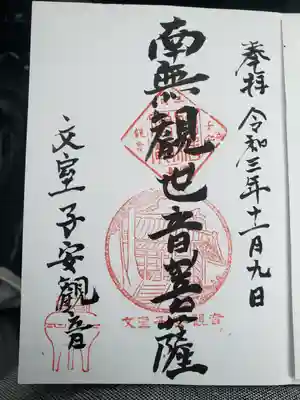 奉拝 令和三年十一月九日
南無観世音菩薩
文室子安観音